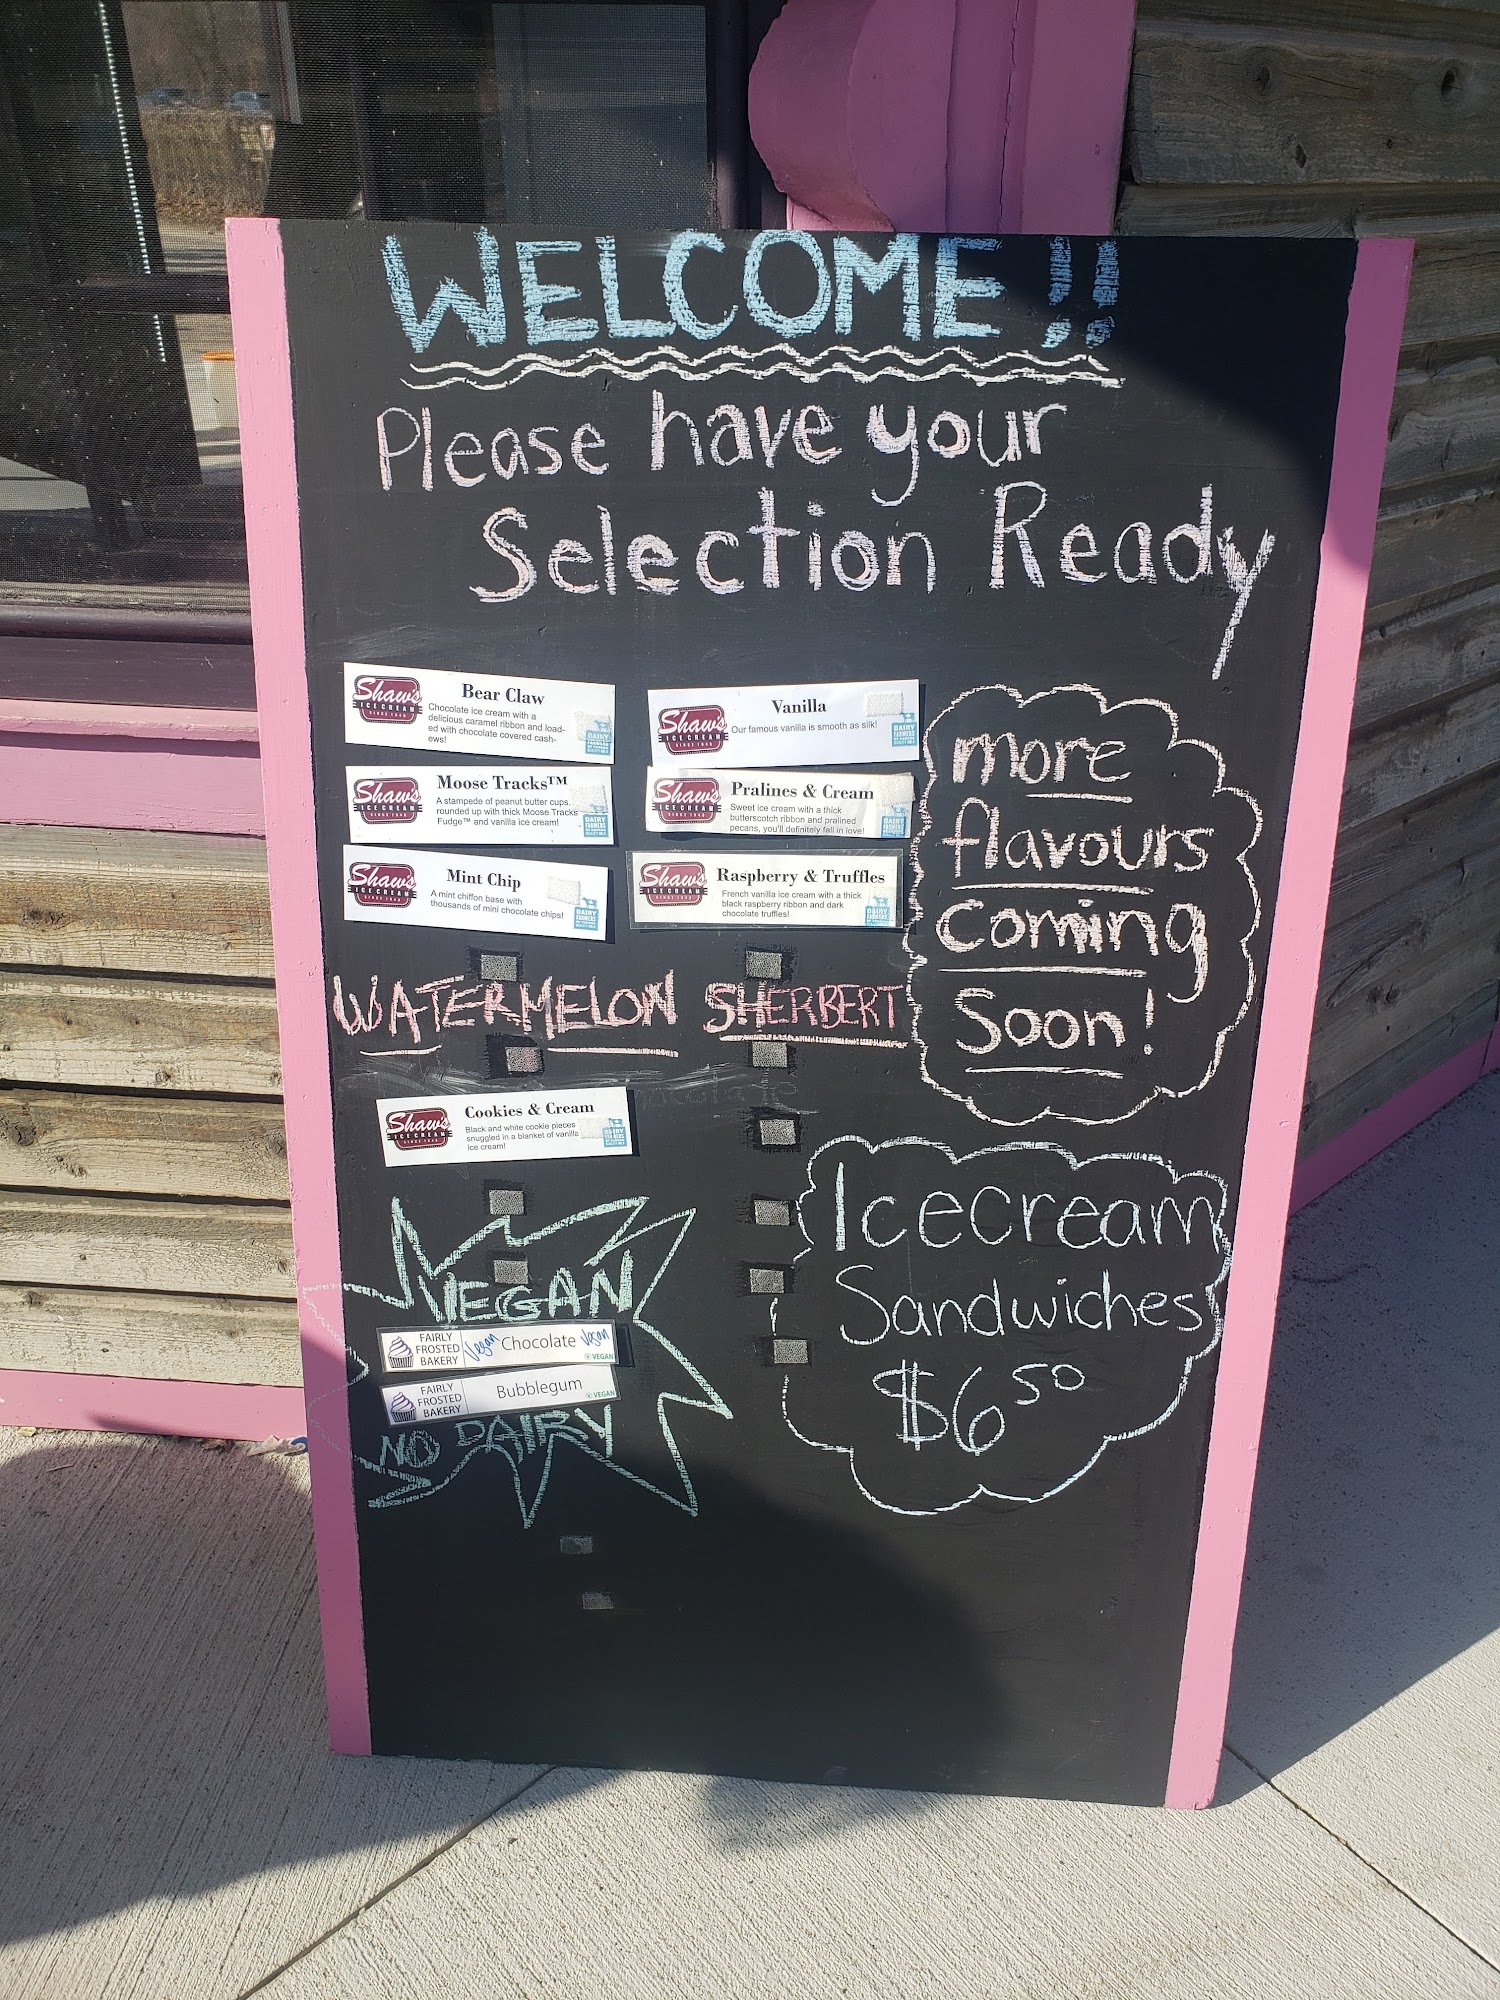 WELCOME!!
Please have your
Selection Ready
Shaw's
ICE CREAM
SINCE 1948
Bear Claw
Chocolate ice cream with a
delicious caramel ribbon and load-
ed with chocolate covered cash-
ews!
Shaw's
ICE CREAM
SINCE 1948
Moose Tracks™
A stampede of peanut butter cups,
rounded up with thick Moose Tracks
Fudge™ and vanilla ice cream!
Shaw's
ICE CREAM
SINCE 1948
Mint Chip
A mint chiffon base with
thousands of mini chocolate chips!
Shaw's
ICE CREAM
SINCE 1948
Vanilla
Our famous vanilla is smooth as silk!
Shaw's
ICE CREAM
SINCE 1948
Pralines & Cream
Sweet ice cream with a thick
butterscotch ribbon and pralined
pecans, you'll definitely fall in love!
Shaw's
ICE CREAM
SINCE 1948
Raspberry & Truffles
French vanilla ice cream with a thick
black raspberry ribbon and dark
chocolate truffles!
more
flavours
coming
Soon!
WATERMELON SHERBERT
Shaw's
ICE CREAM
SINCE 1948
Cookies & Cream
Black and white cookie pieces
snuggled in a blanket of vanilla
ice cream!
VEGAN
FAIRLY
FROSTED
BAKERY
Vegan Chocolate Vegan
VEGAN
FAIRLY
FROSTED
BAKERY
Bubblegum
VEGAN
NO DAIRY
Icecream
Sandwiches
$6 50